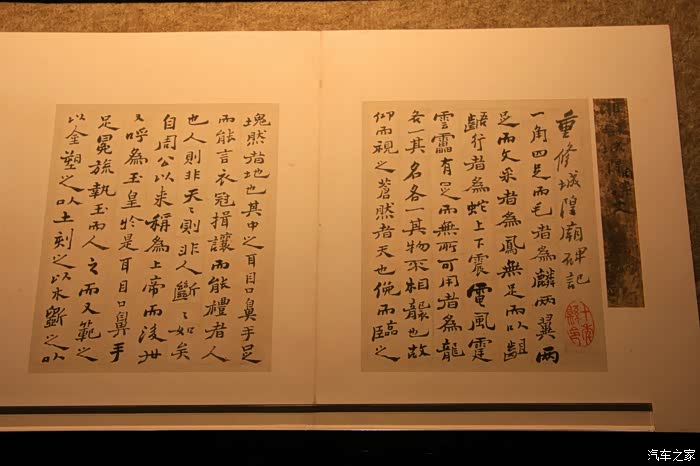 重修城隍廟碑記
一角四足而毛者為麟两翼两
足而文采者為鳳無足而以齟
齬行者為蛇上下震電風霆
雲靁有足而無所可用者為龍
各一其名各一其物不相襲也故
仰而視之蒼然者天也俛而臨之
塊然者地也其中之耳目口鼻手足
而能言衣冠揖讓而能禮者人
也人則非天〻則非人斷〻如矣
自周公以来稱為上帝而後世
又呼為玉皇於是耳目口鼻手
足冕旒執玉而人之而又範之
以金塑之以土刻之以木斲之以
汽车之家